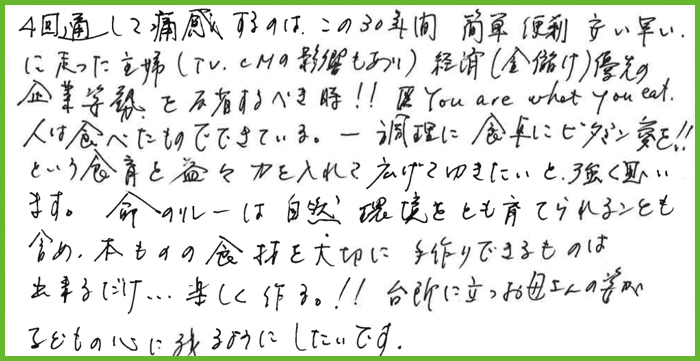 4回通して痛感するのは、この30年間 簡単 便利 安い 早い、
に走った主婦(TV.CMの影響もあり)経済(金儲け)優先の
企業姿勢を反省するべき時!! You are what you eat.
人は食べたものでできている。一調理に 食卓にビタミン愛を!!
という食育を益々力を入れて広げて切きたいと、強く思い
ます。命のリレーは自然、環境をとも育てられることも
含め、本ものの食材を大切に 手作りできるものは
出来るだけ…楽しく作る。!! 台所に立つお母さんの姿が
子どもの心に残るようにしたいです.